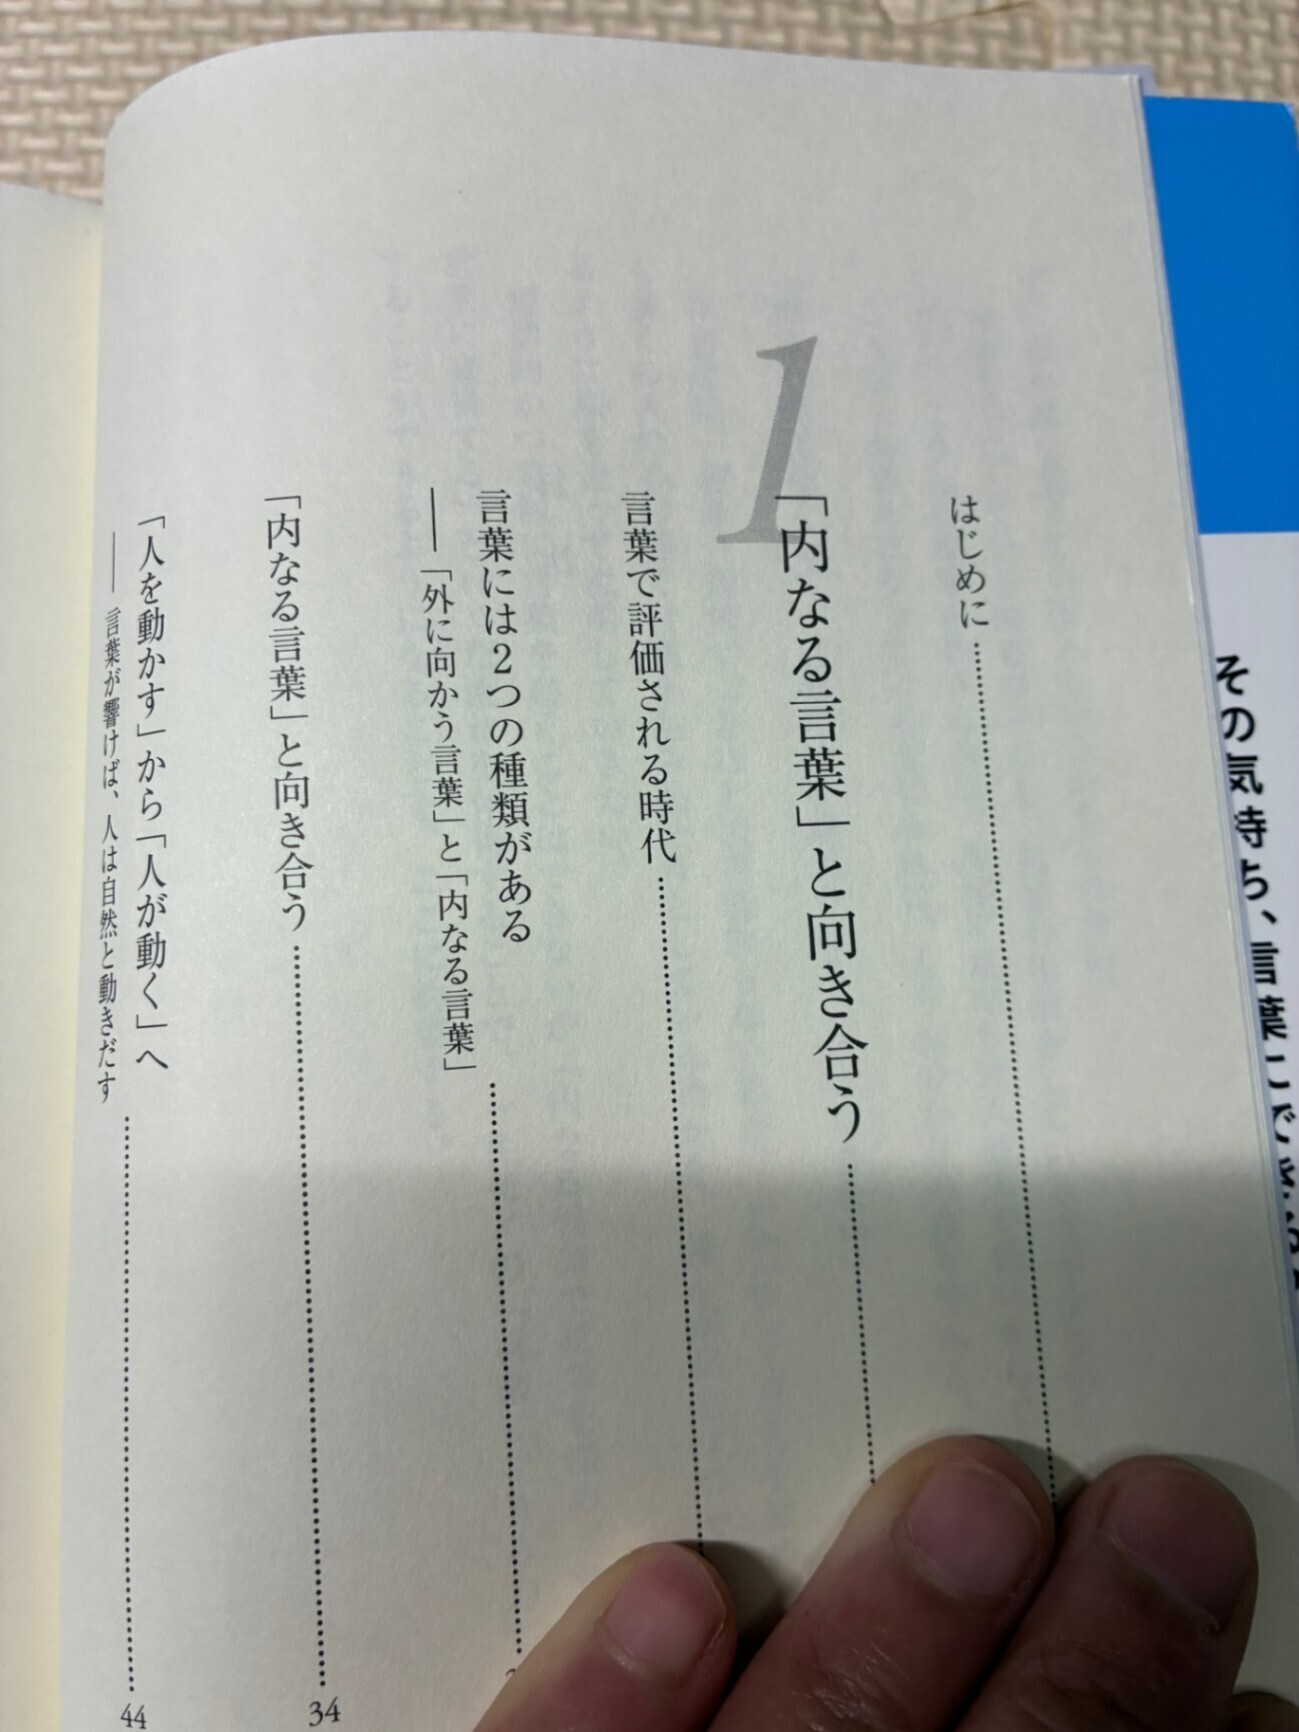 はじめに
1
「内なる言葉」と向き合う
言葉で評価される時代
言葉には2つの種類がある
――「外に向かう言葉」と「内なる言葉」
「内なる言葉」と向き合う
34
「人を動かす」から「人が動く」へ
――言葉が響けば、人は自然と動きだす
44
その気持ち、言葉に